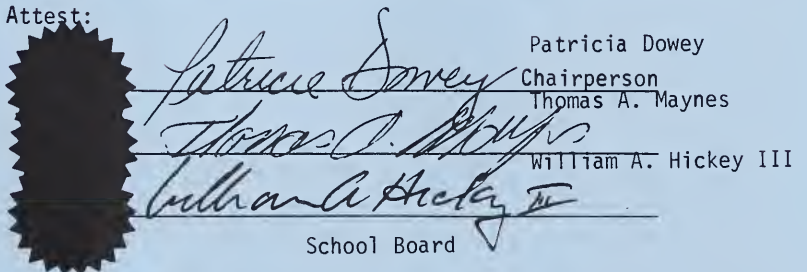 Attest:
Patricia Dowey
Patricia Dowey
Chairperson
Thomas A. Maynes
Thomas A. Maynes
William A. Hickey III
William A Hickey III
School Board